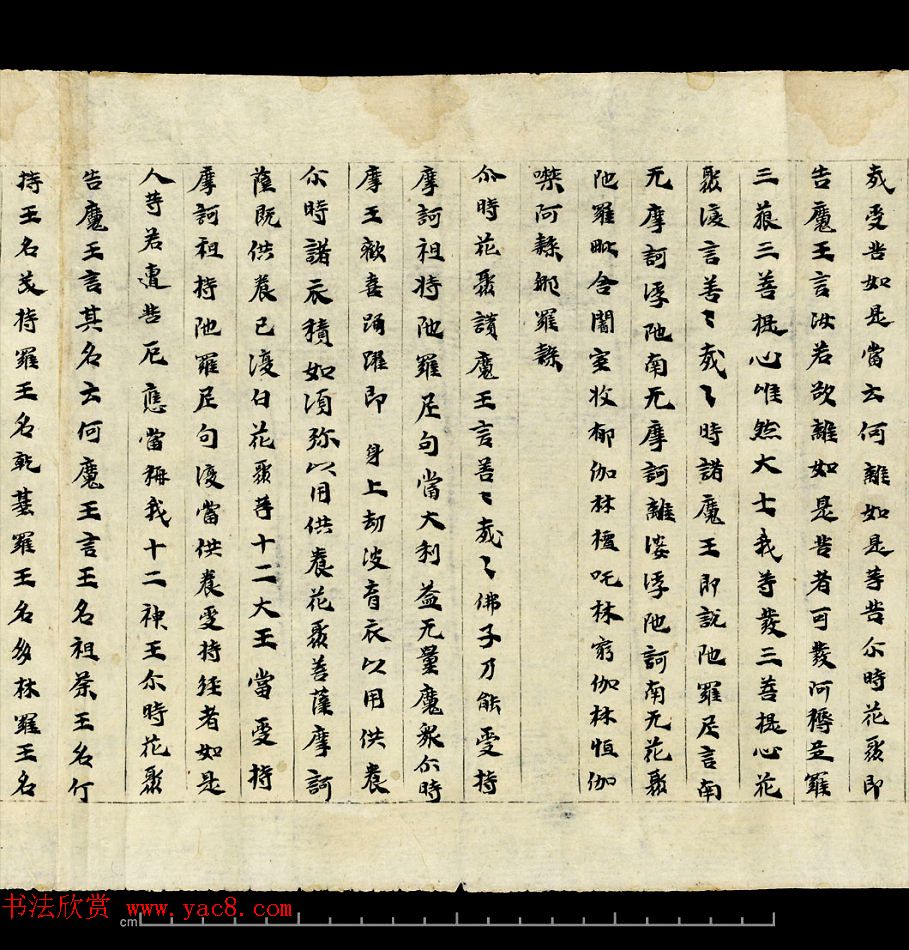 我受苦如是當云何離如是等苦尒時花聚即
告魔王言汝若欲離如是苦者可發阿耨三羅
三藐三善提心唯然大士我等發三善提心花
聚復言善〻哉〻時諸魔王即說陁羅尼言南
无摩訶浮陁南无摩訶離婆浮陁訶南无花聚
陁羅毗舍闍室收郁伽林檀吒林窮伽林恒伽
噤阿隸那羅隸
尒時花聚讃魔王言善〻哉〻佛子乃能受持
摩訶祖持陁羅尼句當大利益无量魔眾尒時
摩王歡喜踊躍即身上劫波育衣以用供養
尒時諸衣積如湏弥以用供養花聚菩薩摩訶
薩既供養已復白花聚等十二大王當受持
摩訶祖持陁羅尼句復當供養受持經者如是
人等若遭苦厄應當稱我十二神王尒時花聚
告魔王言其名云何魔王言王名祖荼王名斤
持王名茂持羅王名乹基羅王名多林羅王名
书法欣赏 www.yac8.com
cm